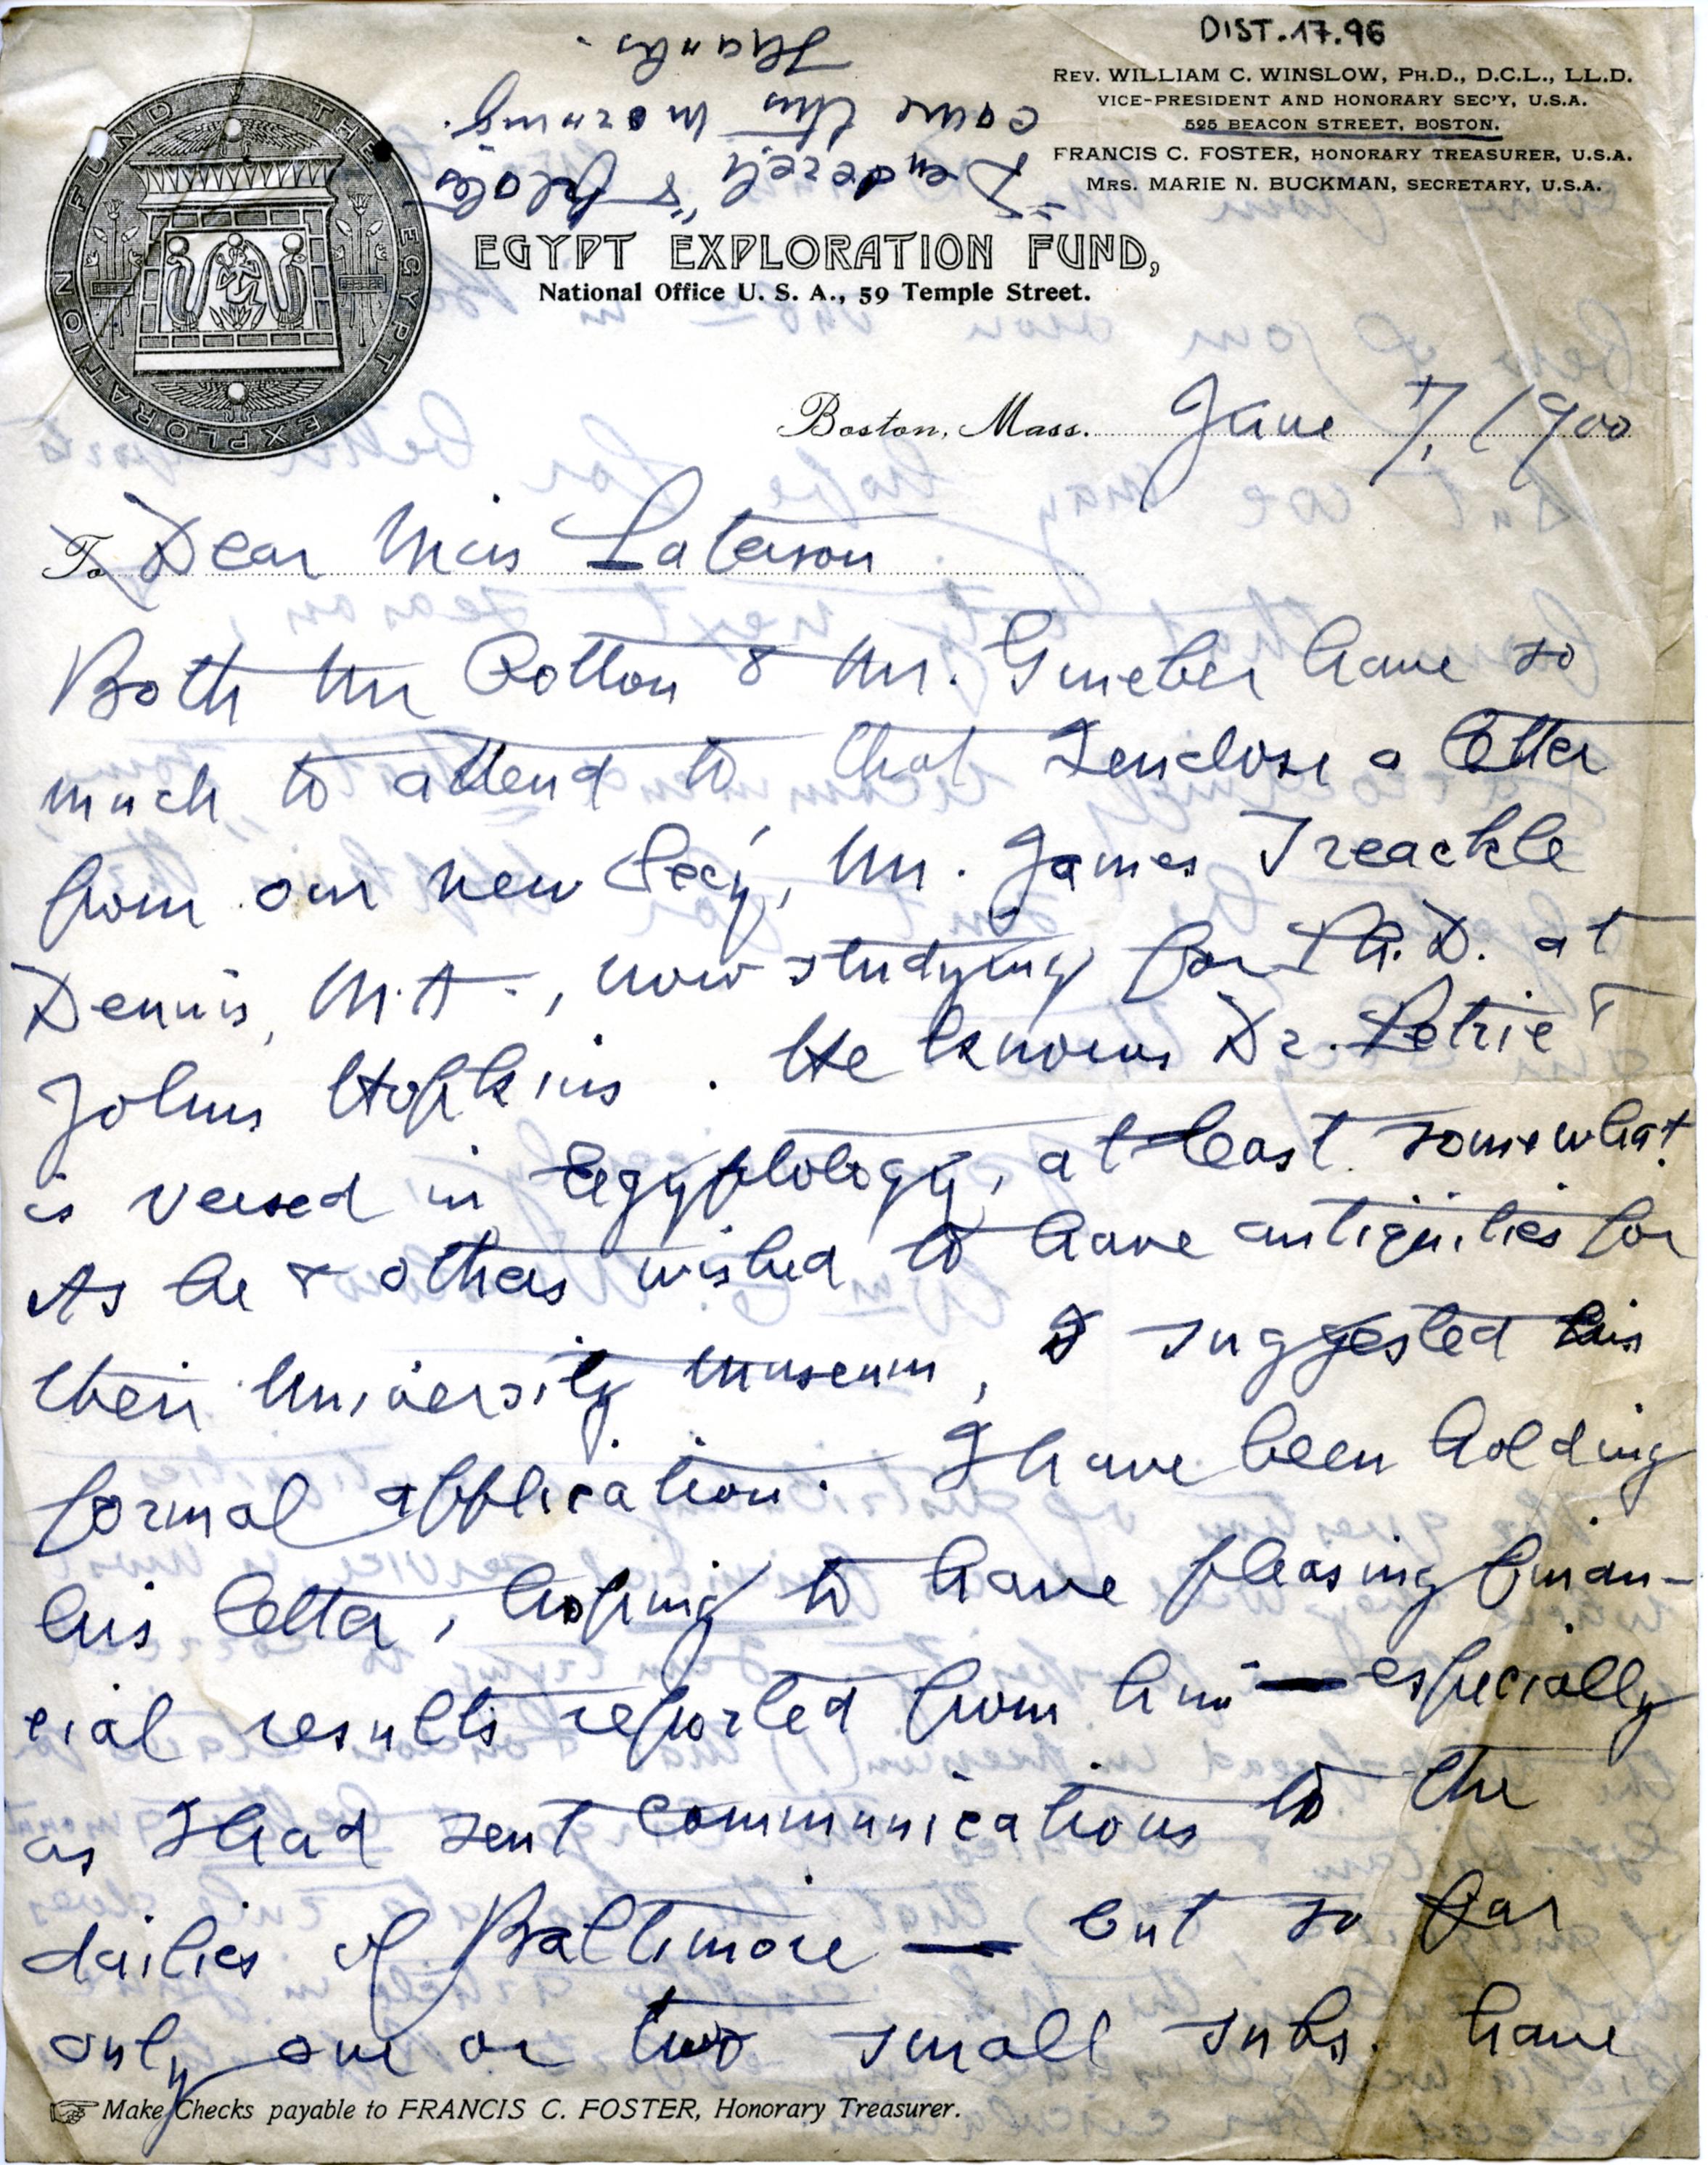 DIST.17.96
REV. WILLIAM C. WINSLOW, PH.D., D.C.L., LL.D.
VICE-PRESIDENT AND HONORARY SEC'Y, U.S.A.
525 BEACON STREET, BOSTON.
FRANCIS C. FOSTER, HONORARY TREASURER, U.S.A.
MRS. MARIE N. BUCKMAN, SECRETARY, U.S.A.
"Dendereh" & plates
came this morning.
Thanks.
THE EGYPT EXPLORATION FUND
EGYPT EXPLORATION FUND,
National Office U. S. A., 59 Temple Street.
Boston, Mass. June 7, 1900
To Dear Miss Paterson
Both Mr Cotton & Mr. Grueber have so
much to attend to that I enclose a letter
from our new Secy, Mr. James Treackle
Dennis, M.A., now studying for Ph.D. at
Johns Hopkins. He knows Dr. Petrie &
is versed in Egyptology, at least somewhat.
As he & others wished to have antiquities for
their University Museum, I suggested this
formal application. I have been holding
his letter, hoping to have pleasing finan-
cial results reported from him — especially
as I had sent communications to the
dailies of Baltimore — but so far
only one or two small subs. have
Make Checks payable to FRANCIS C. FOSTER, Honorary Treasurer.